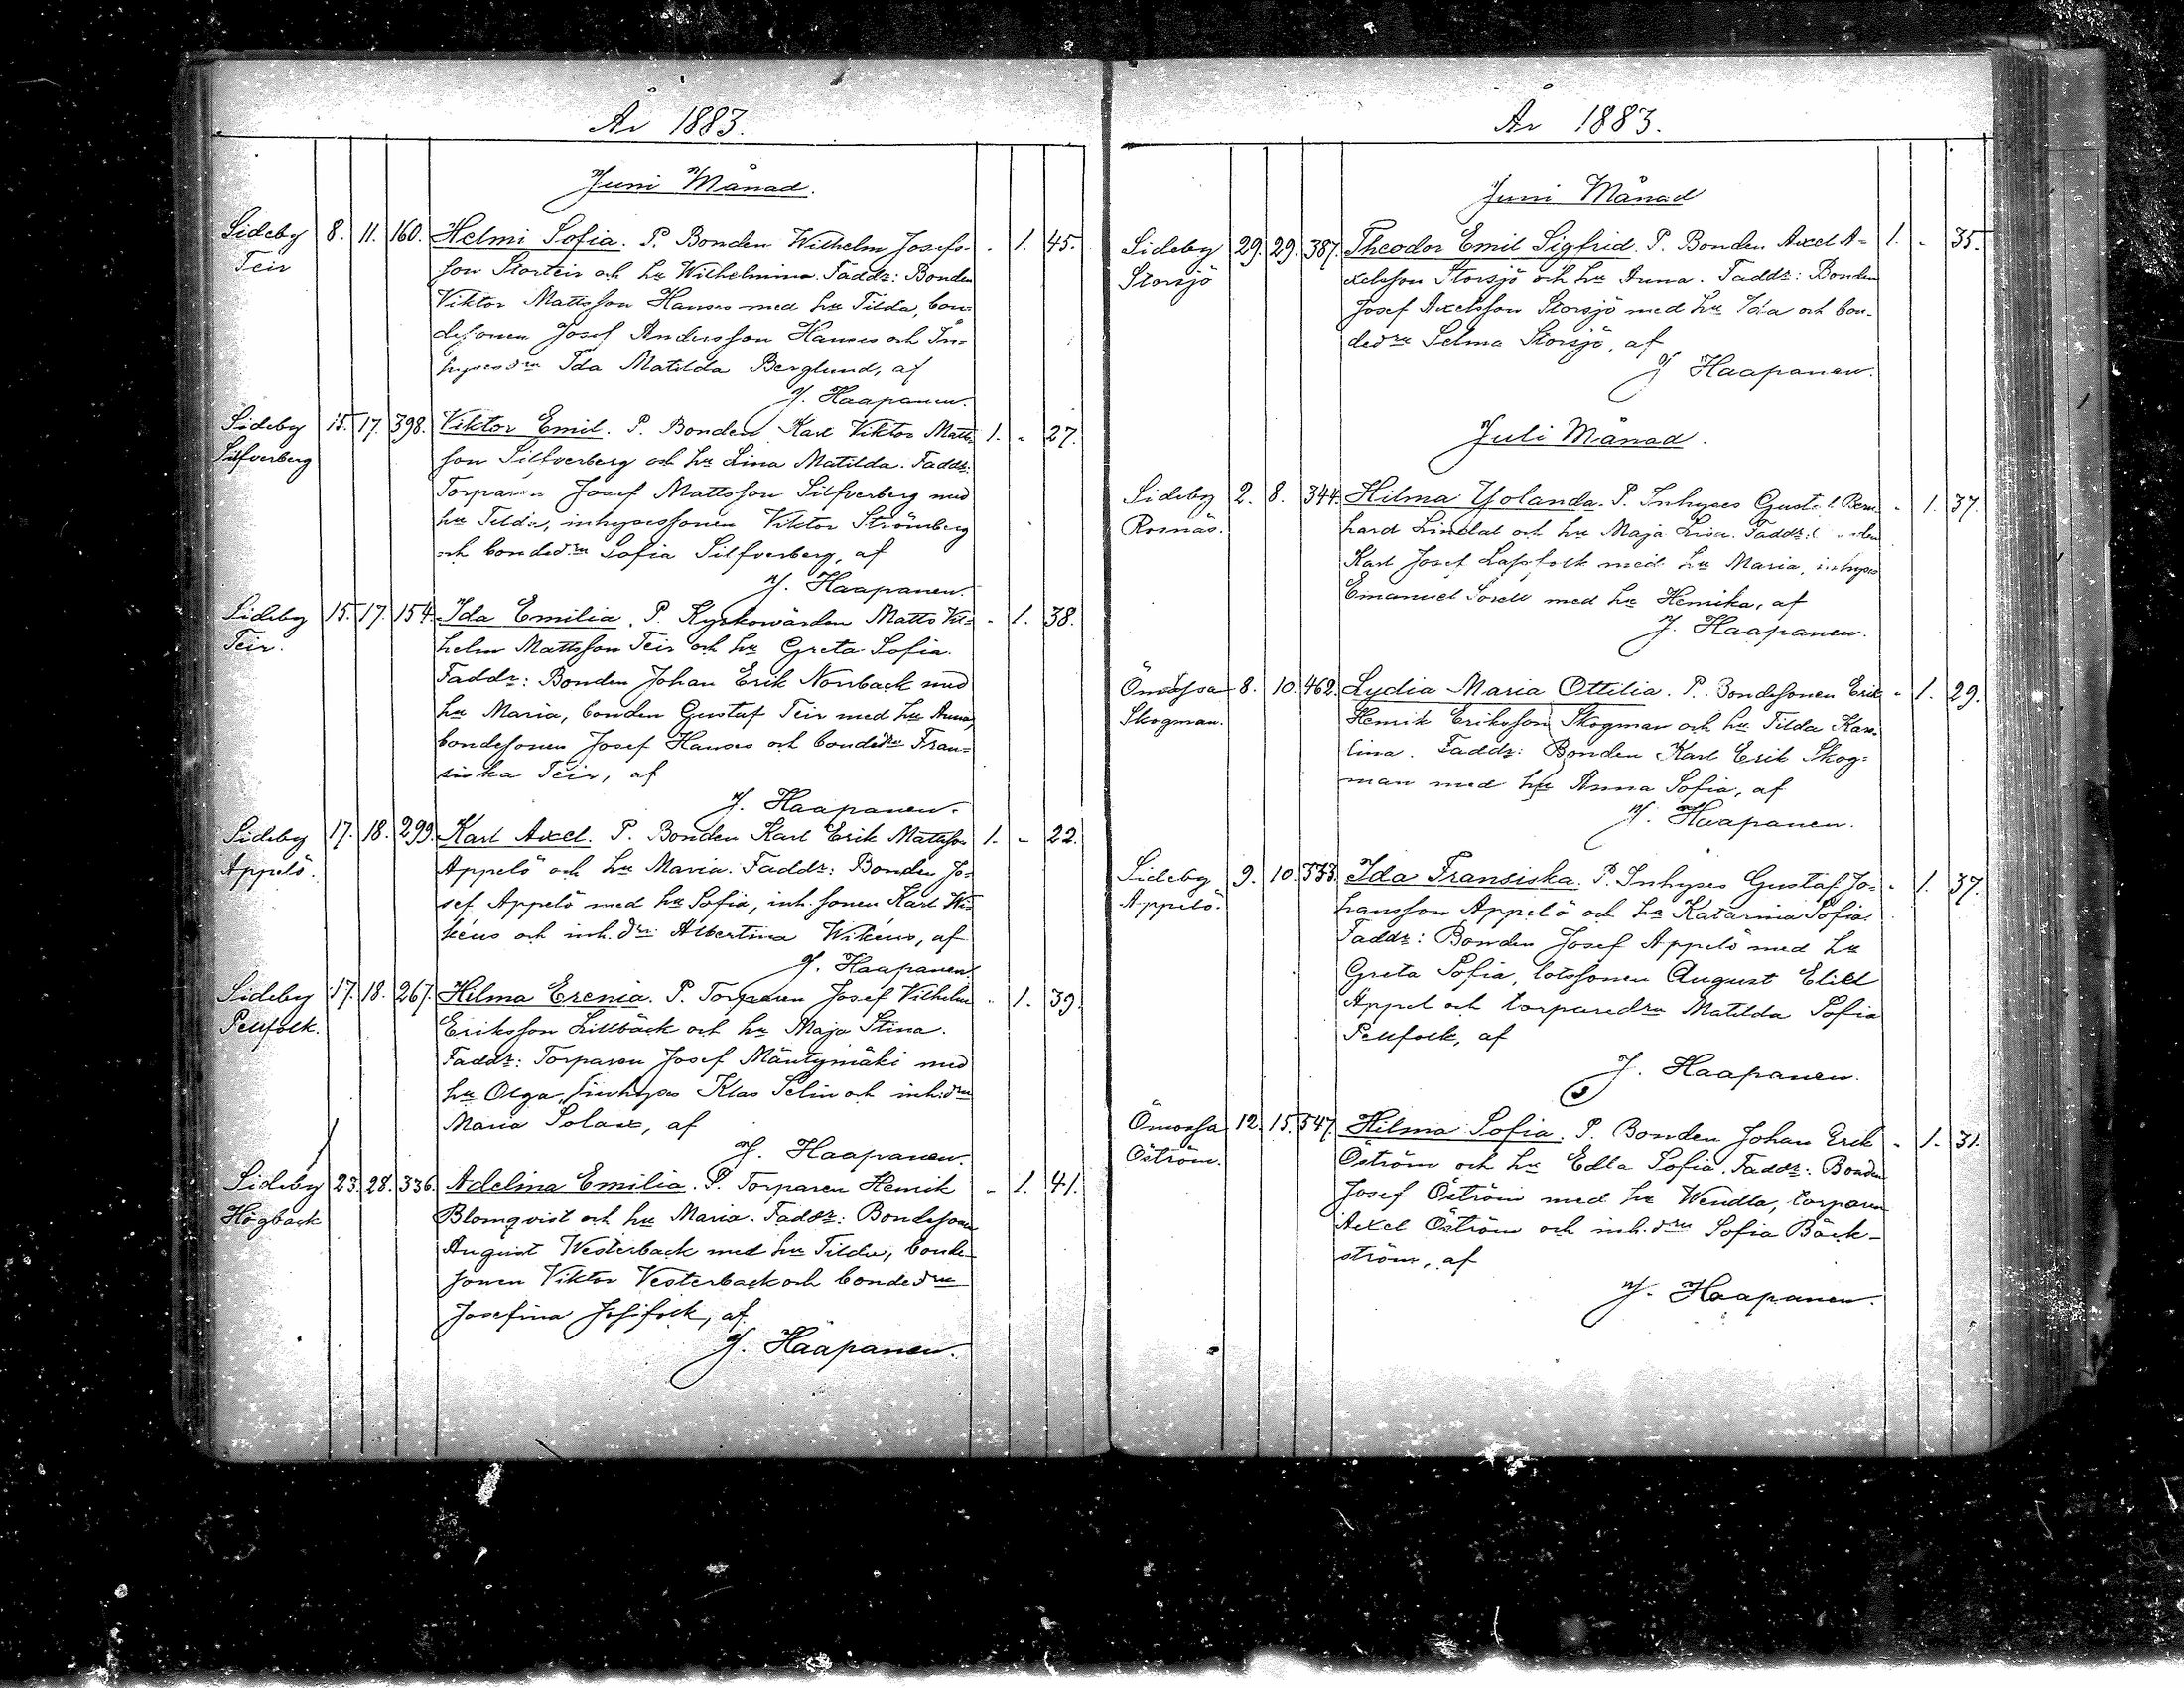 År 1883.
Juni Månad.
Sideby 8. 11. 160. Helmi Sofia. P. Bonden Wilhelm Josefs- - 1. 45.
Teir son Storteir och hu Wilhelmina. Faddr: Bonden
Viktor Mattsson Hanses med hu Tilda, bon-
desonen Josef Andersson Hanses och In-
hysesdrn Ida Matilda Berglund, af
J. Haapanen.
Sideby 15. 17. 398. Viktor Emil. P. Bonden Karl Viktor Matts- 1. - 27.
Silfverberg son Silfverberg och hu Lina Matilda. Faddr:
Torparen Josef Mattsson Silfverberg med
hu Tilda, inhysessonen Viktor Strömberg
och bondedrn Sofia Silfverberg, af
J. Haapanen.
Sideby 15. 17. 154. Ida Emilia. P. Kyrkowärden Matts Vil- - 1. 38.
Teir. helm Mattsson Teir och hu Greta Sofia.
Faddr: Bonden Johan Erik Norrback med
hu Maria, bonden Gustaf Teir med hu Anna,
bondesonen Josef Hanses och bondedrn Fran-
siska Teir, af
J. Haapanen.
Sideby 17. 18. 299. Karl Axel. P. Bonden Karl Erik Mattsson 1. - 22.
Appelö. Appelö och hu Maria. Faddr: Bonden Jo-
sef Appelö med hu Sofia, inh. sonen Karl Wi-
kéus och inh. drn Albertina Wikéus, af
J. Haapanen.
Sideby 17. 18. 267. Hilma Erenia. P. Torparen Josef Vilhelm - 1. 39.
Pellfolk. Eriksson Lillbäck och hu Maja Stina.
Faddr: Torparen Josef Mäntymäki med
hu Olga, inhyses Klas Selin och inh. drn
Maria Solax, af
J. Haapanen.
Sideby 23. 28. 336. Adelina Emilia. P. Torparen Henrik - 1. 41.
Högback Blomqvist och hu Maria. Faddr: Bondesonen
August Westerback med hu Tilda, bonde-
sonen Viktor Vesterback och bondedrn
Josefina Josfolk, af
J. Haapanen.
År 1883.
Juni Månad
Sideby 29. 29. 387. Theodor Emil Sigfrid. P. Bonden Axel A- 1. - 35.
Storsjö xelsson Storsjö och hu Anna. Faddr: Bonden
Josef Axelsson Storsjö med hu Ida och bon-
dedrn Selma Storsjö, af
J Haapanen.
Juli Månad.
Sideby 2. 8. 344. Hilma Yolanda. P. Inhyses Gustaf Bern- - 1. 37.
Rosnäs. hard Lindal och hu Maja Lisa. Faddr:
Karl Josef Lassfolk med hu Maria, inhyses
Emanuel Sorell med hu Henrika, af
J. Haapanen.
Ömossa 8. 10. 462. Lydia Maria Ottilia. P. Bondesonen Erik - 1. 29.
Skogman. Henrik Eriksson Skogman och hu Tilda Karo-
lina. Faddr: Bonden Karl Erik Skog-
man med hu Anna Sofia, af
J. Haapanen.
Sideby 9. 10. 333. Ida Fransiska. P. Inhyses Gustaf Jo- - 1. 37.
Appelö. hansson Appelö och hu Katarina Sofia.
Faddr: Bonden Josef Appelö med hu
Greta Sofia, lotssonen August Elill
Appel och torparedrn Matilda Sofia
Pellfolk, af
J. Haapanen.
Ömossa 12. 15. 547. Hilma Sofia. P. Bonden Johan Erik - 1. 31.
Öström. Öström och hu Edla Sofia. Faddr: Bonden
Josef Öström med hu Wendla, torparen
Axel Öström och inh. drn Sofia Bäck-
ström, af
J. Haapanen.